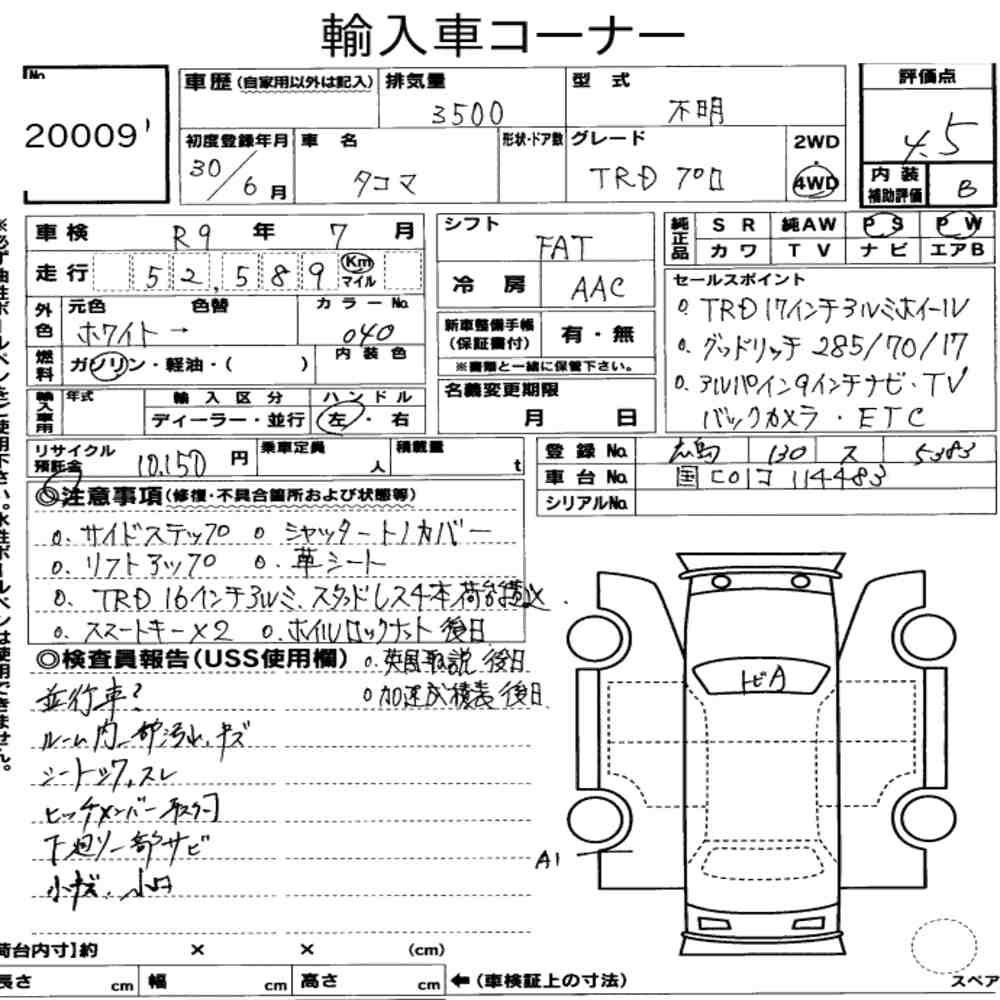 輸入車コーナー
No. 20009
車歴 (自家用以外は記入)
排気量 3500
型式 不明
評価点 4.5
初度登録年月 30/6月
車名 タコマ
形状・ドア数
グレード TRD プロ
2WD
4WD
内装補助評価 B
車検 R9年 7月
走行 52,589 Km マイル
外色 元色 ホワイト → 色替
カラーNo. 040
燃料 ガソリン・軽油・( )
内装色
輸入車用 年式
輸入区分 ディーラー・並行
ハンドル 左・右
リサイクル預託金 10,150 円
乗車定員 人
積載量 t
シフト FAT
冷房 AAC
新車整備手帳(保証書付) 有・無
※書類と一緒に保管下さい。
名義変更期限 月 日
純正品 SR 純AW PS PW
カワ TV ナビ エアB
セールスポイント
o. TRD 17インチアルミホイール
o. グッドリッチ 285/70/17
o. アルパイン9インチナビ・TV
バックカメラ・ETC
登録No. 広島 130 ス 5383
車台No. 国[01]コ 114483
シリアルNo.
◎注意事項(修復・不具合箇所および状態等)
o. サイドステップ o. シャッタートノカバー
o. リフトアップ o. 革シート
o. TRD 16インチアルミ、スタッドレス4本荷台積込
o. スマートキー×2 o. ホイルロックナット後日
◎検査員報告(USS使用欄) o. 英国取説 後日
o 加速式積表 後日
並行車?
ルーム内一部汚れ、キズ
シートシワ、スレ
ヒッチメンバー取付
下廻り一部サビ
小キズ、小凹
トビA
A1
荷台内寸】約 × × (cm)
長さ cm 幅 cm 高さ cm ←(車検証上の寸法)
スペア